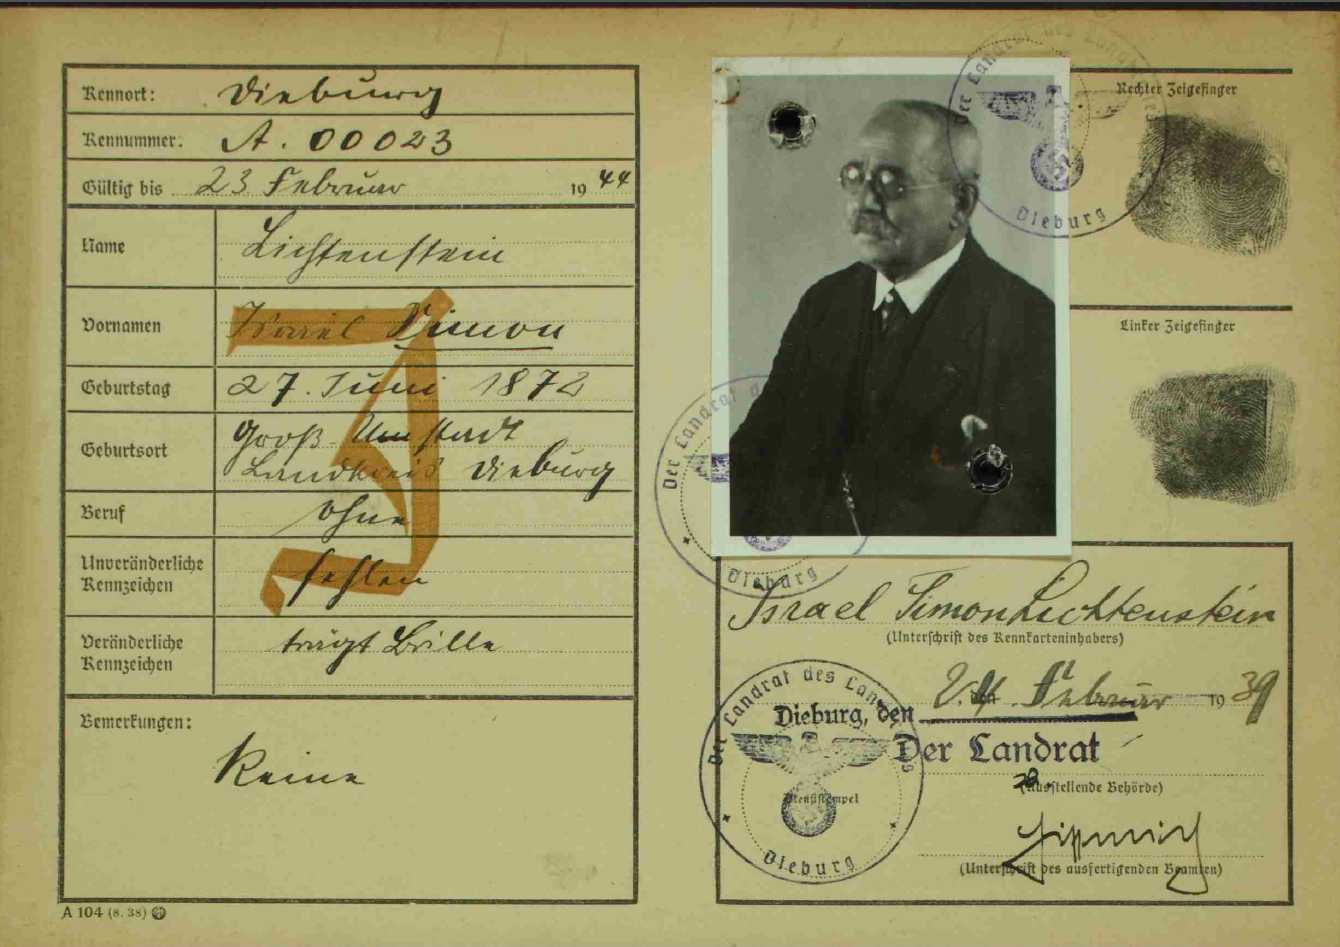 Kennort: Dieburg
Kennummer: A. 00023
Gültig bis 23 Februar 1944
Name Lichtenstein
Vornamen Israel Simon
Geburtstag 27. Juni 1872
Geburtsort Groß-Umstadt
Landkreis Dieburg
Beruf ohne
Unveränderliche
Kennzeichen fehlen
Veränderliche
Kennzeichen trägt Brille
Bemerkungen:
Keine
A 104 (8. 38)
J
Der Landrat des
Dieburg
Rechter Zeigefinger
Linker Zeigefinger
Der Landrat
Dieburg
Israel Simon Lichtenstein
(Unterschrift des Kennkarteninhabers)
Dieburg, den Februar 1939
Der Landrat
(Ausstellende Behörde)
(Unterschrift des ausfertigenden Beamten)
Der Landrat des
Dienststempel
Dieburg